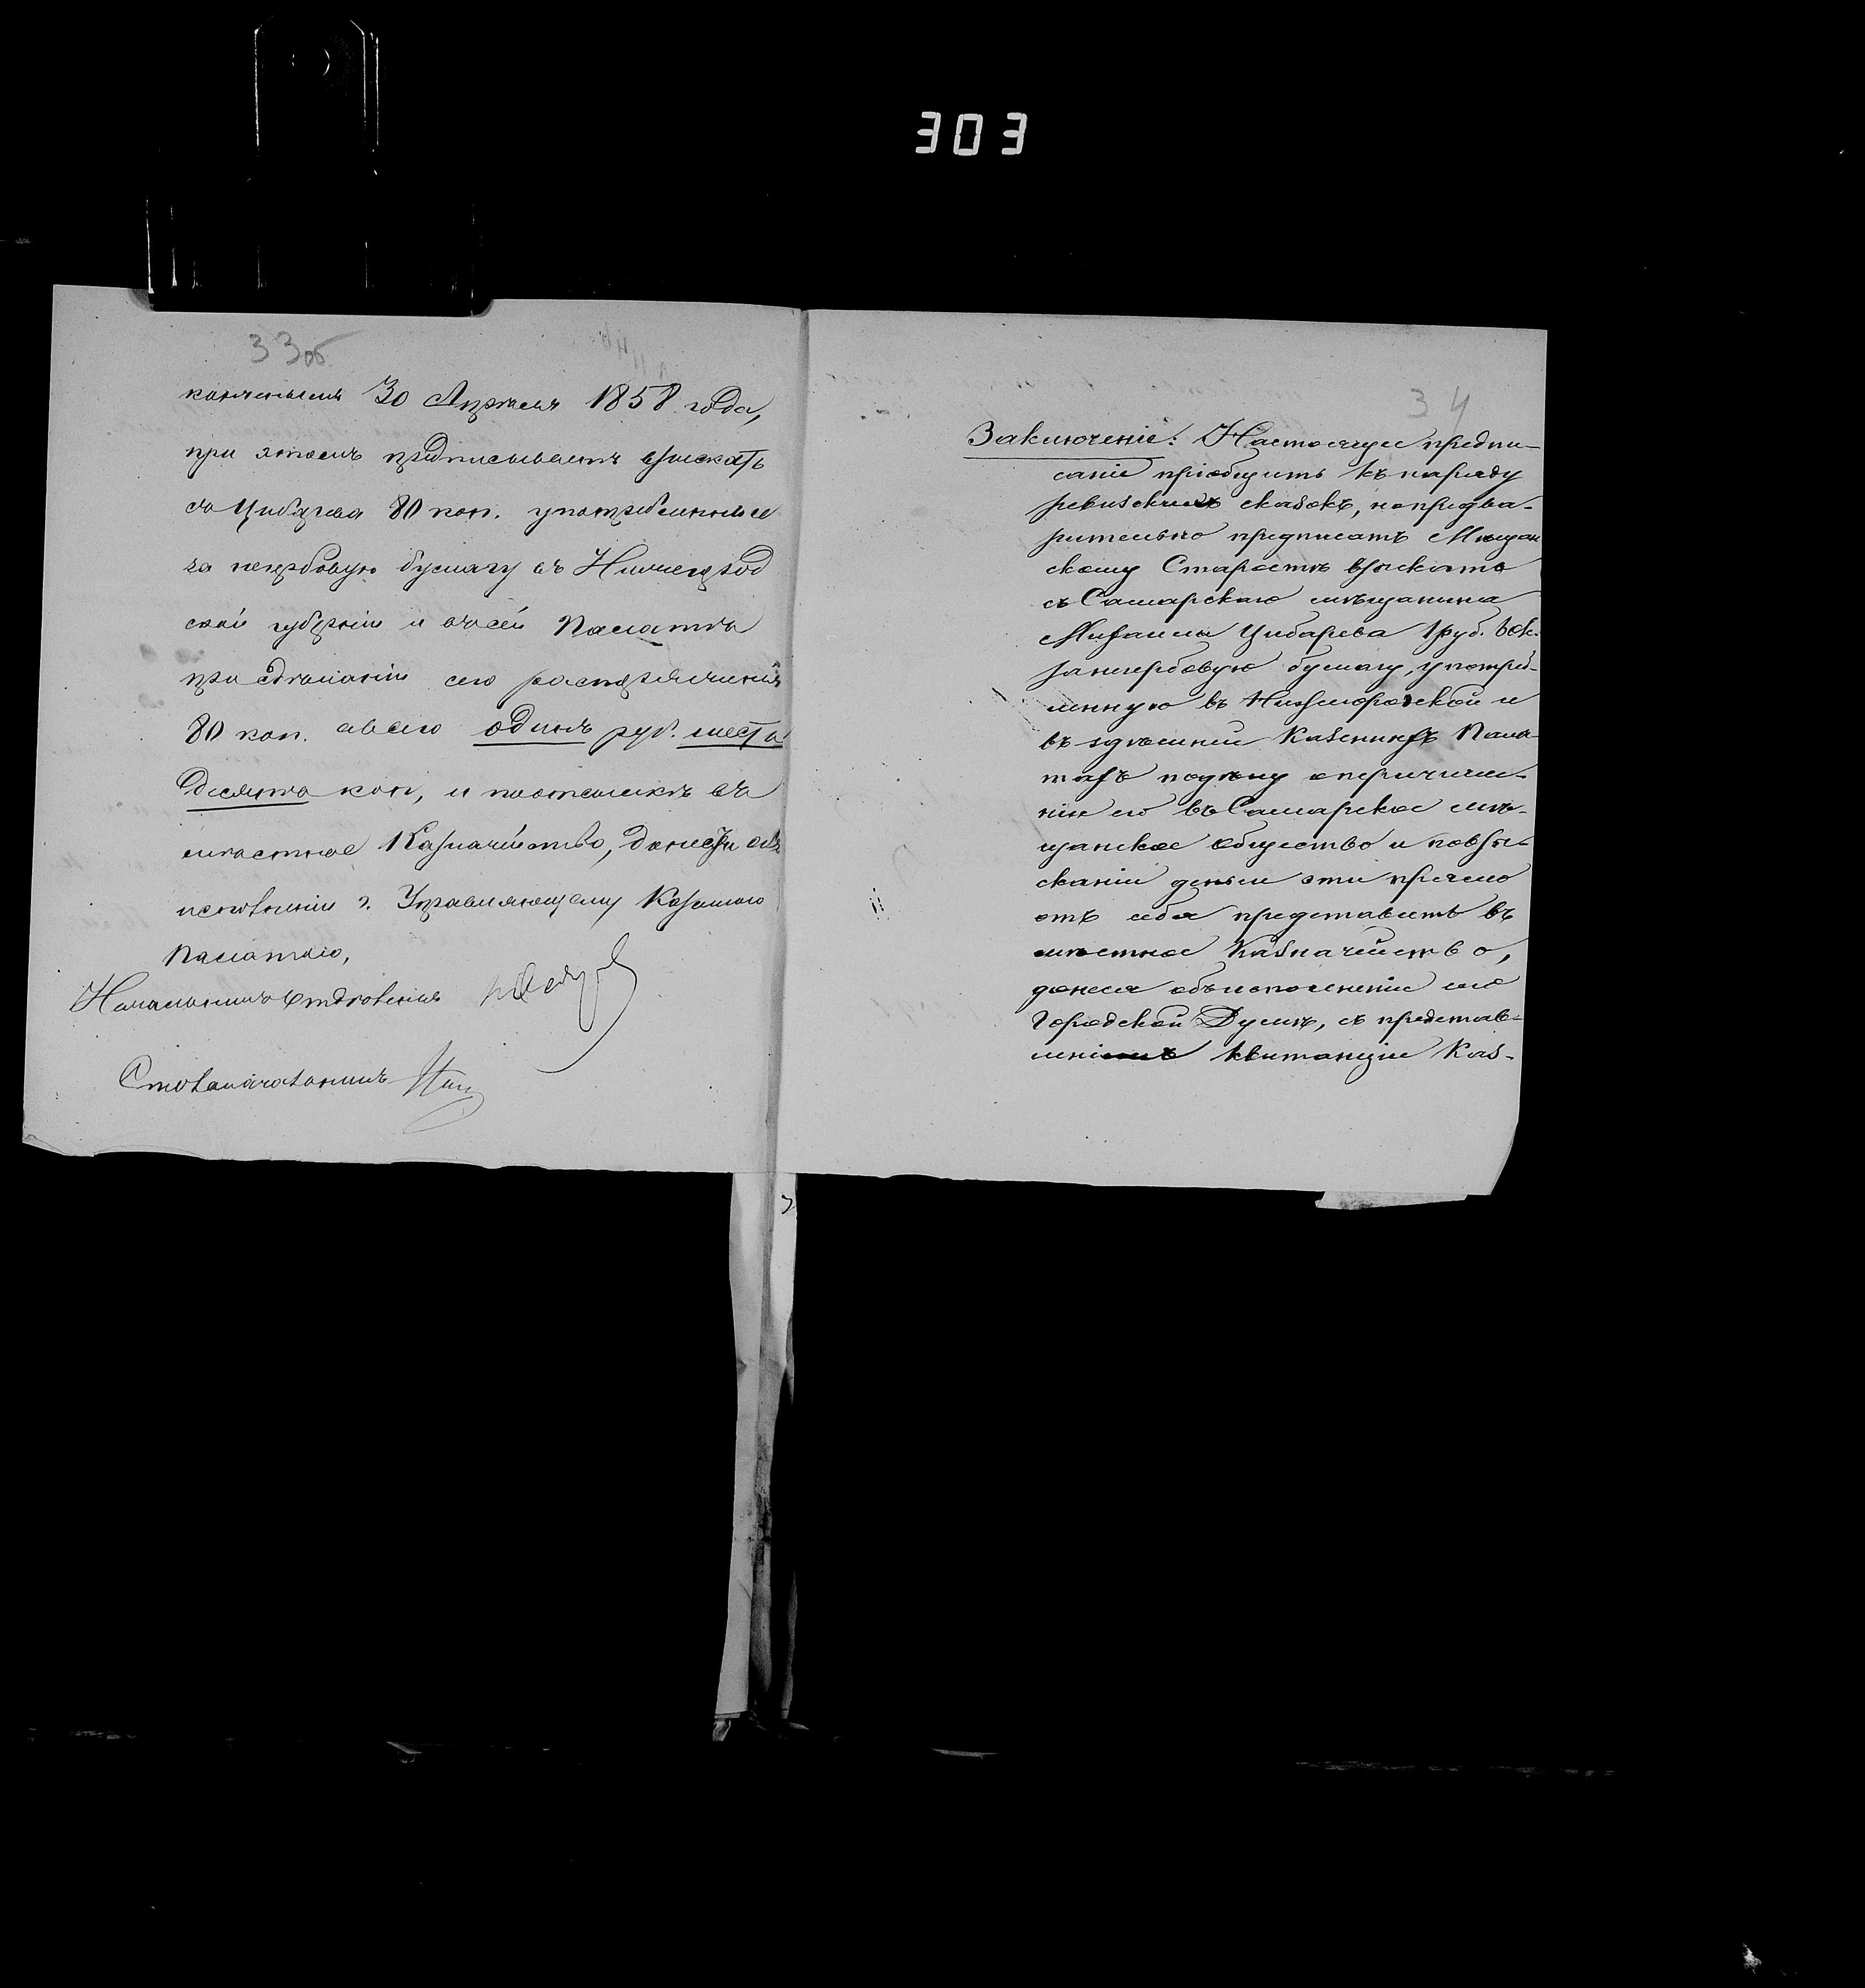 303
33об
конченымъ 30 Апрѣля 1858 года,
при этомъ предписываетъ взыскать
съ Цибарева 80 коп. употребленные
за гербовую бумагу въ Нижегород
ской губерніи и въ сей Палатѣ
при сдѣланіи сего распоряженія
80 коп. а всего одинъ руб. шесть
десятъ коп, и по отсылкѣ въ
мѣстное Казначейство, донести объ
исполненіи г. Управляющему Казенною
Палатою,
Начальникъ Отдѣленія
Столоначальникъ
34
Заключеніе: Настоящее предпи-
саніе пріобщить къ наряду
ревизскихъ сказокъ, но предва-
рительно предписать Мѣщан
скому Старостѣ взыскать
съ Самарскаго мѣщанина
Михаила Цибарева 1 руб. 60 к.
за гербовую бумагу, употреб-
ленную въ Нижегородской и
въ здѣшней Казенныхъ Пала-
тахъ по дѣлу о перечисле-
ніи его въ Самарское мѣ-
щанское общество и по взы-
сканіи деньги эти прямо
отъ себя представить въ
мѣстное Казначейство,
донеся объ исполненіи сего
Городской Думѣ, съ представ-
леніемъ квитанціи Каз-